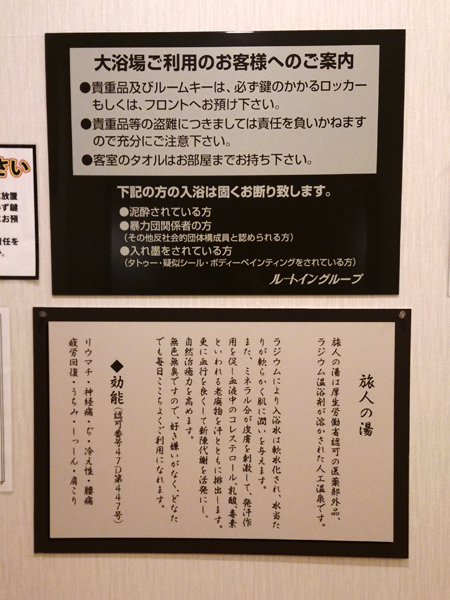 大浴場ご利用のお客様へのご案内
●貴重品及びルームキーは、必ず鍵のかかるロッカー
もしくは、フロントへお預け下さい。
●貴重品等の盗難につきましては責任を負いかねます
ので充分にご注意下さい。
●客室のタオルはお部屋までお持ち下さい。
下記の方の入浴は固くお断り致します。
●泥酔されている方
●暴力団関係者の方
(その他反社会的団体構成員と認められる方)
●入れ墨をされている方
(タトゥー・疑似シール・ボディーペインティングをされている方)
ルートイングループ
さい
放置
ず鍵
お預
責任を
旅人の湯
旅人の湯は厚生労働省認可の医薬部外品、
ラジウム温浴剤が溶かされた人工温泉です。
ラジウムにより入浴水は軟水化され、水当た
りが軟らかく肌に潤いを与えます。
また、ミネラル分が皮膚を刺激して、発汗作
用を促し血液中のコレステロール、乳酸、毒素
といわれる老廃物を汗とともに排出します。
更に血行を良くして新陳代謝を活発にし、
自然治癒力を高めます。
無色無臭ですので、好き嫌いがなく、どなた
でも毎日ここちよくご利用になれます。
◆効能(認可番号47D第447号)
リウマチ・神経痛・ぢ・冷え性・腰痛
疲労回復・うちみ・しっしん・肩こり